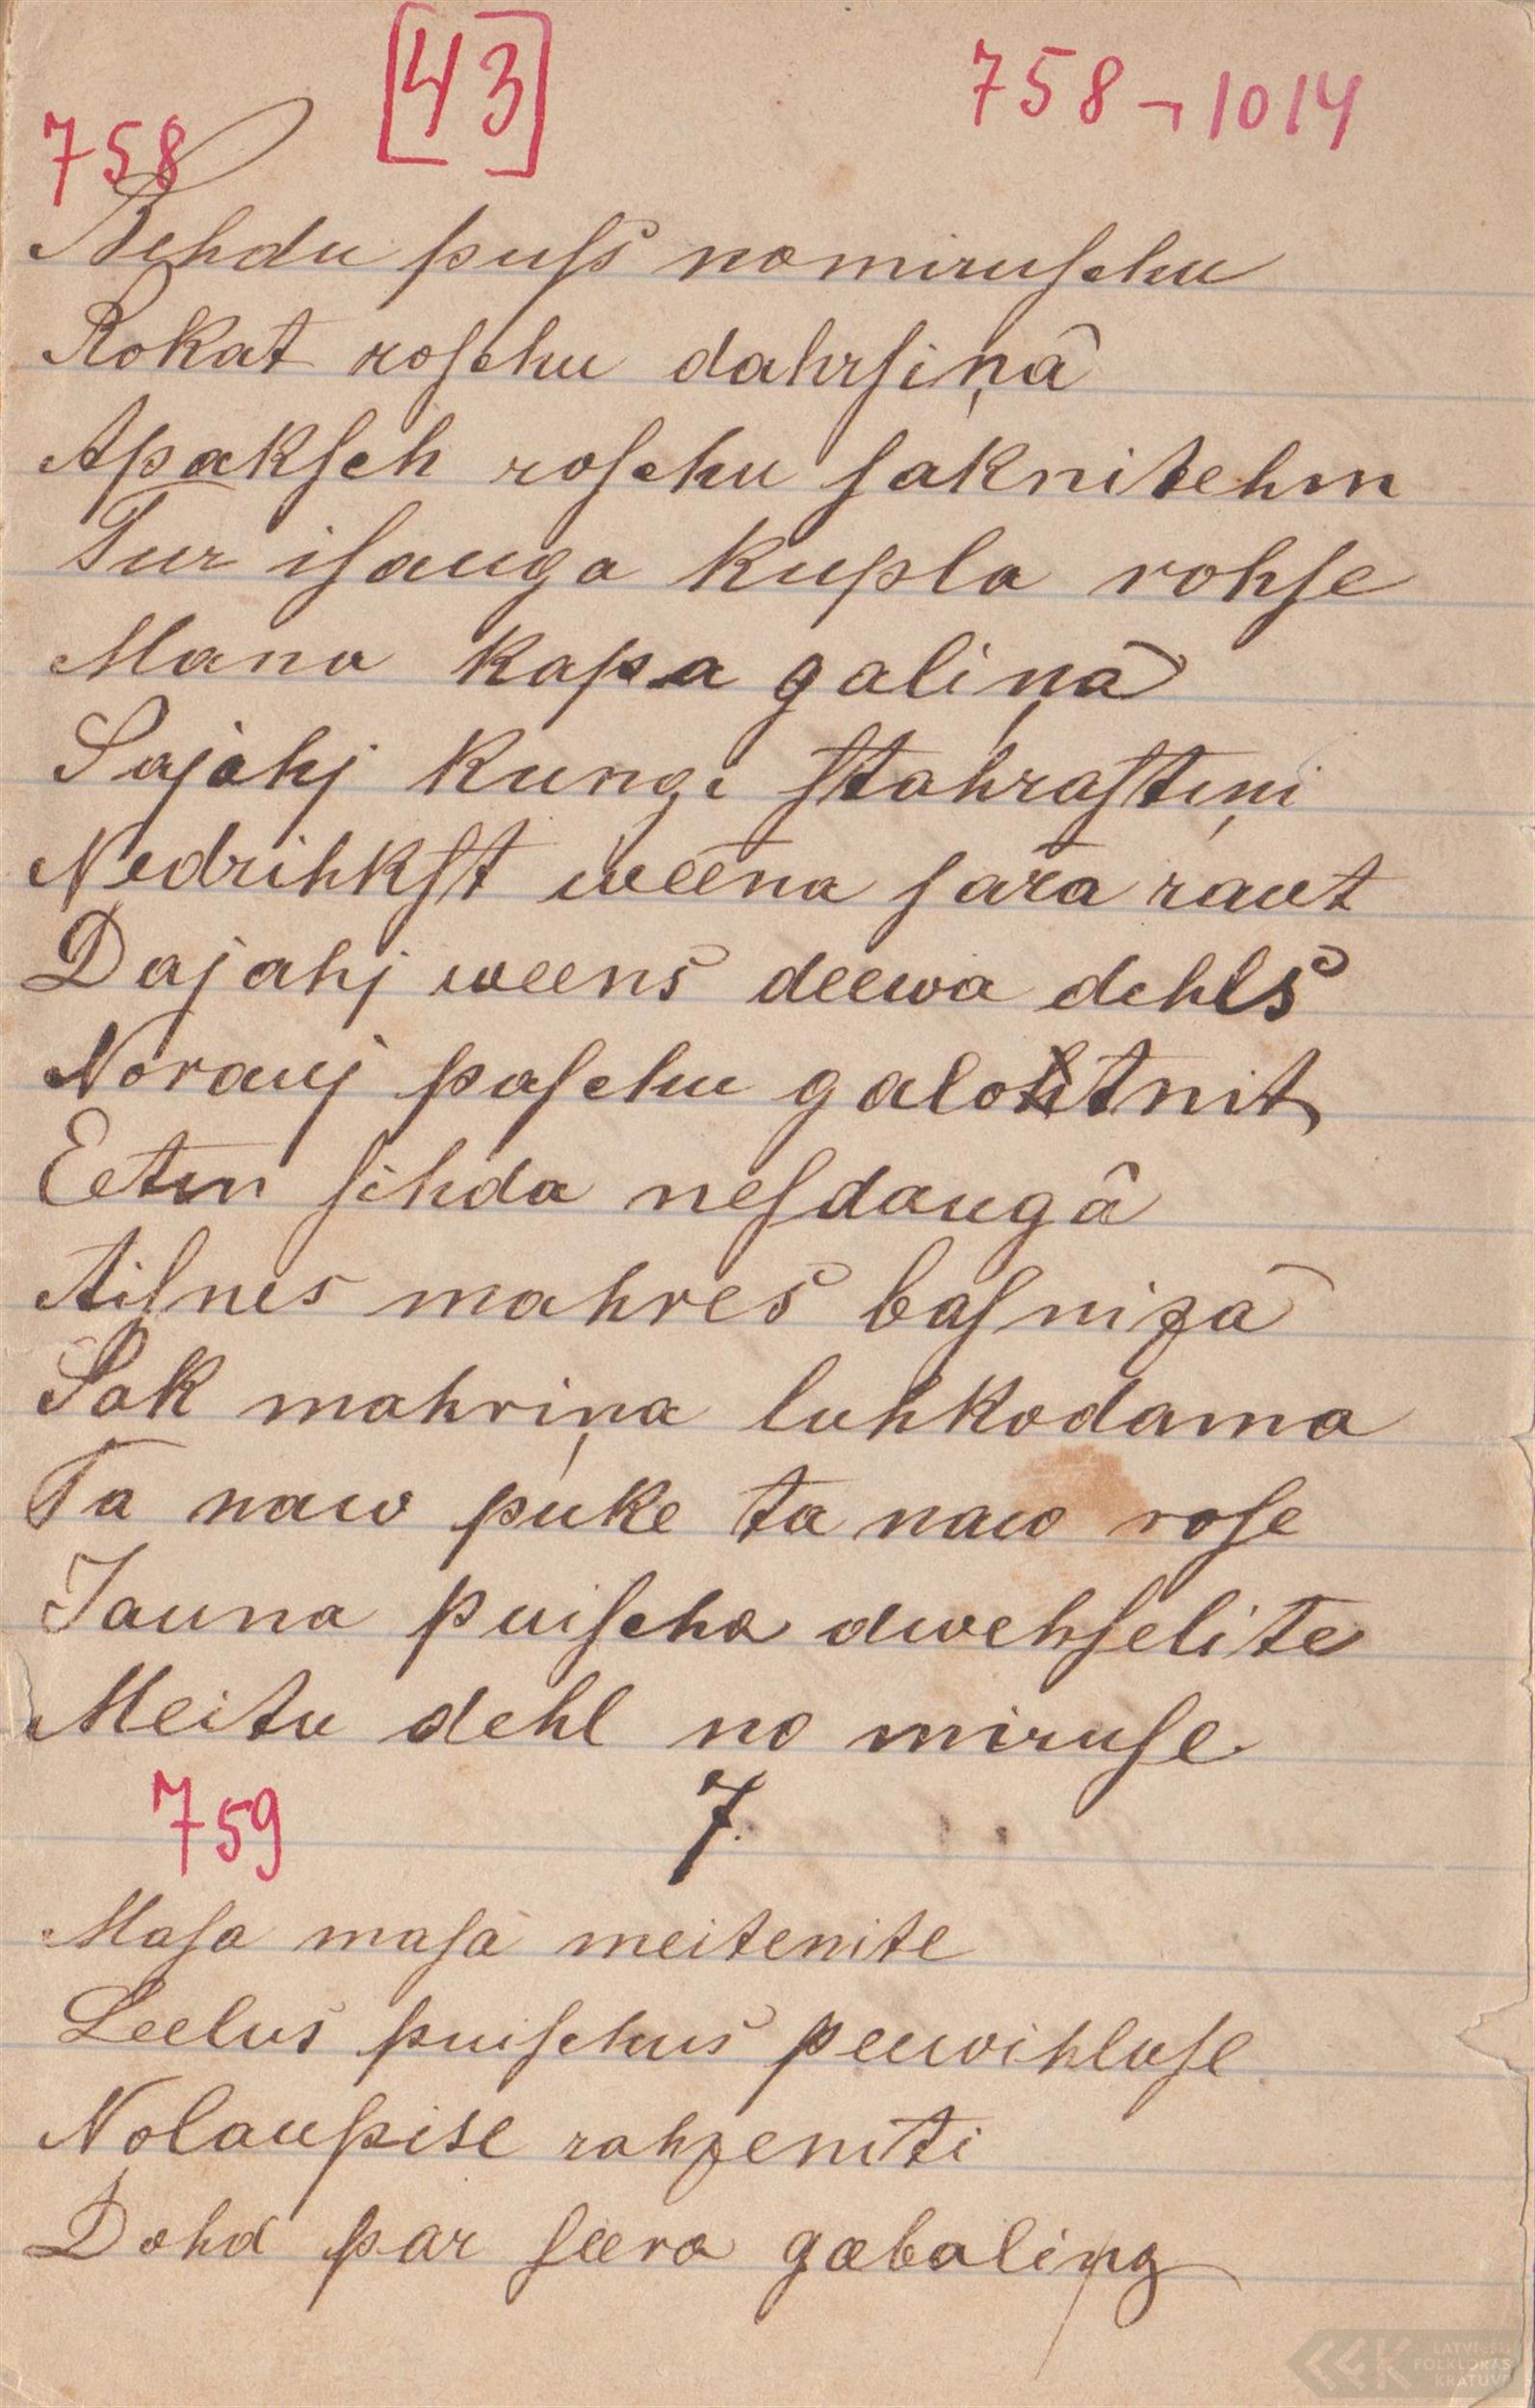 [43] 758-1014
758
Behdu puſs nomiruſchu
Rokat roſchu dahrſiņâ
Apakſch roſchu ſaknitehm
Tur iſauga kupla rohſe
Mana kapa galiņâ
Sajahj kungi ſtahraſtiņi
Nedrihkſt weena ſara raut
Dajahj weens deewa dehls
Norauj paſchu galotnit
Eetin ſihda neſdaugâ
Aiſnes mahres baſnizâ
Sak mahriņa luhkodama
Ta naw puke ta naw roſe
Jauna puiſcha dwehſelite
Meitu dehl no miruſe
759 7.
Maſa maſa meitenite
Leelus puiſchus peewihluſe
Nolaupise rahzeniti
Dohd par ſeera gabaliņg
LATVIEŠU FOLKLORAS KRĀTUVE